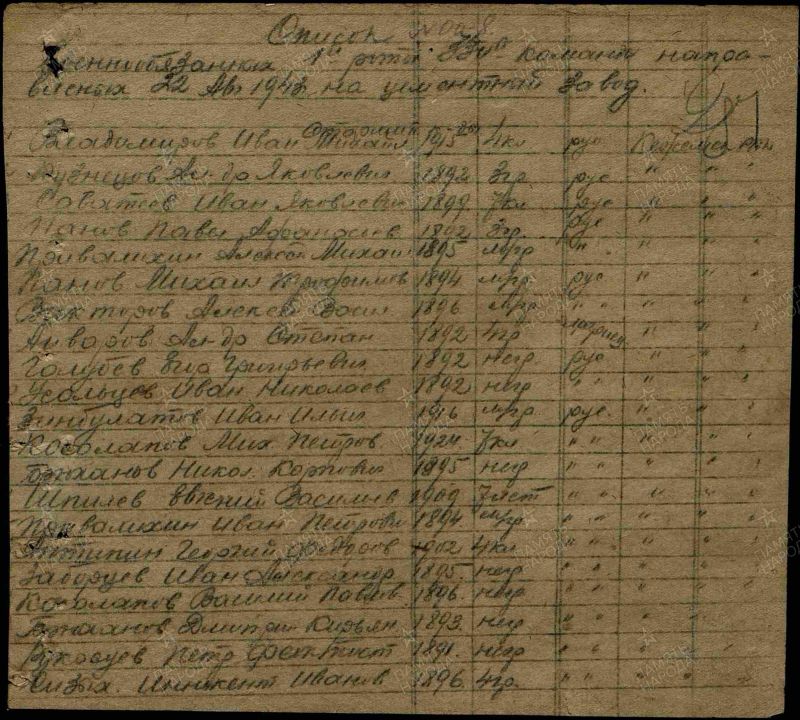 Список
Военнообязанных 1й роты команды направ-
леных 22 Авг 1942 на цементный завод.
Владимиров Иван Михаил 1915 4кл рус Кежемск рен
Кузнецов Ал-др Яковлевич 1892 3гр рус " " "
Савятеев Иван Яковлевич 1899 7кл рус " " "
Панов Павел Афанасьев 1892 3гр рус " " "
Привалихин Алексей Михаил 1895 мгр " " " "
Панов Михаил Трофимов 1894 мгр рус " " "
Викторов Алексей Васил 1896 мгр " " " "
Ал-др Степан 1892 4гр " " "
Голубев Егор Григорьевич 1892 негр рус " " "
Усольцев Иван Николаев 1892 нгр " " " " "
Зинтулатов Иван Ильич 1916 мгр рус. " " "
Косолапов Мих Петров 1924 7кл " " " " "
Никол. Карпович 1895 негр " " " " "
Шпилев Василиев 1909 " " " " "
Привалихин Иван Петрович 1894 мгр " " " " "
Антипин Георгий Федоров 1902 4кл " " " " "
Заборцев Иван Александр 1895 негр " " " " "
Косолапов Василий Павлов 1896. негр " " " " "
Дмитрий Кирьян 1893. негр " " " " "
Рукосуев Петр Феоктист 1891. негр " " " " "
Сизых. Инокент Иванов 1896 4гр. " " " " "